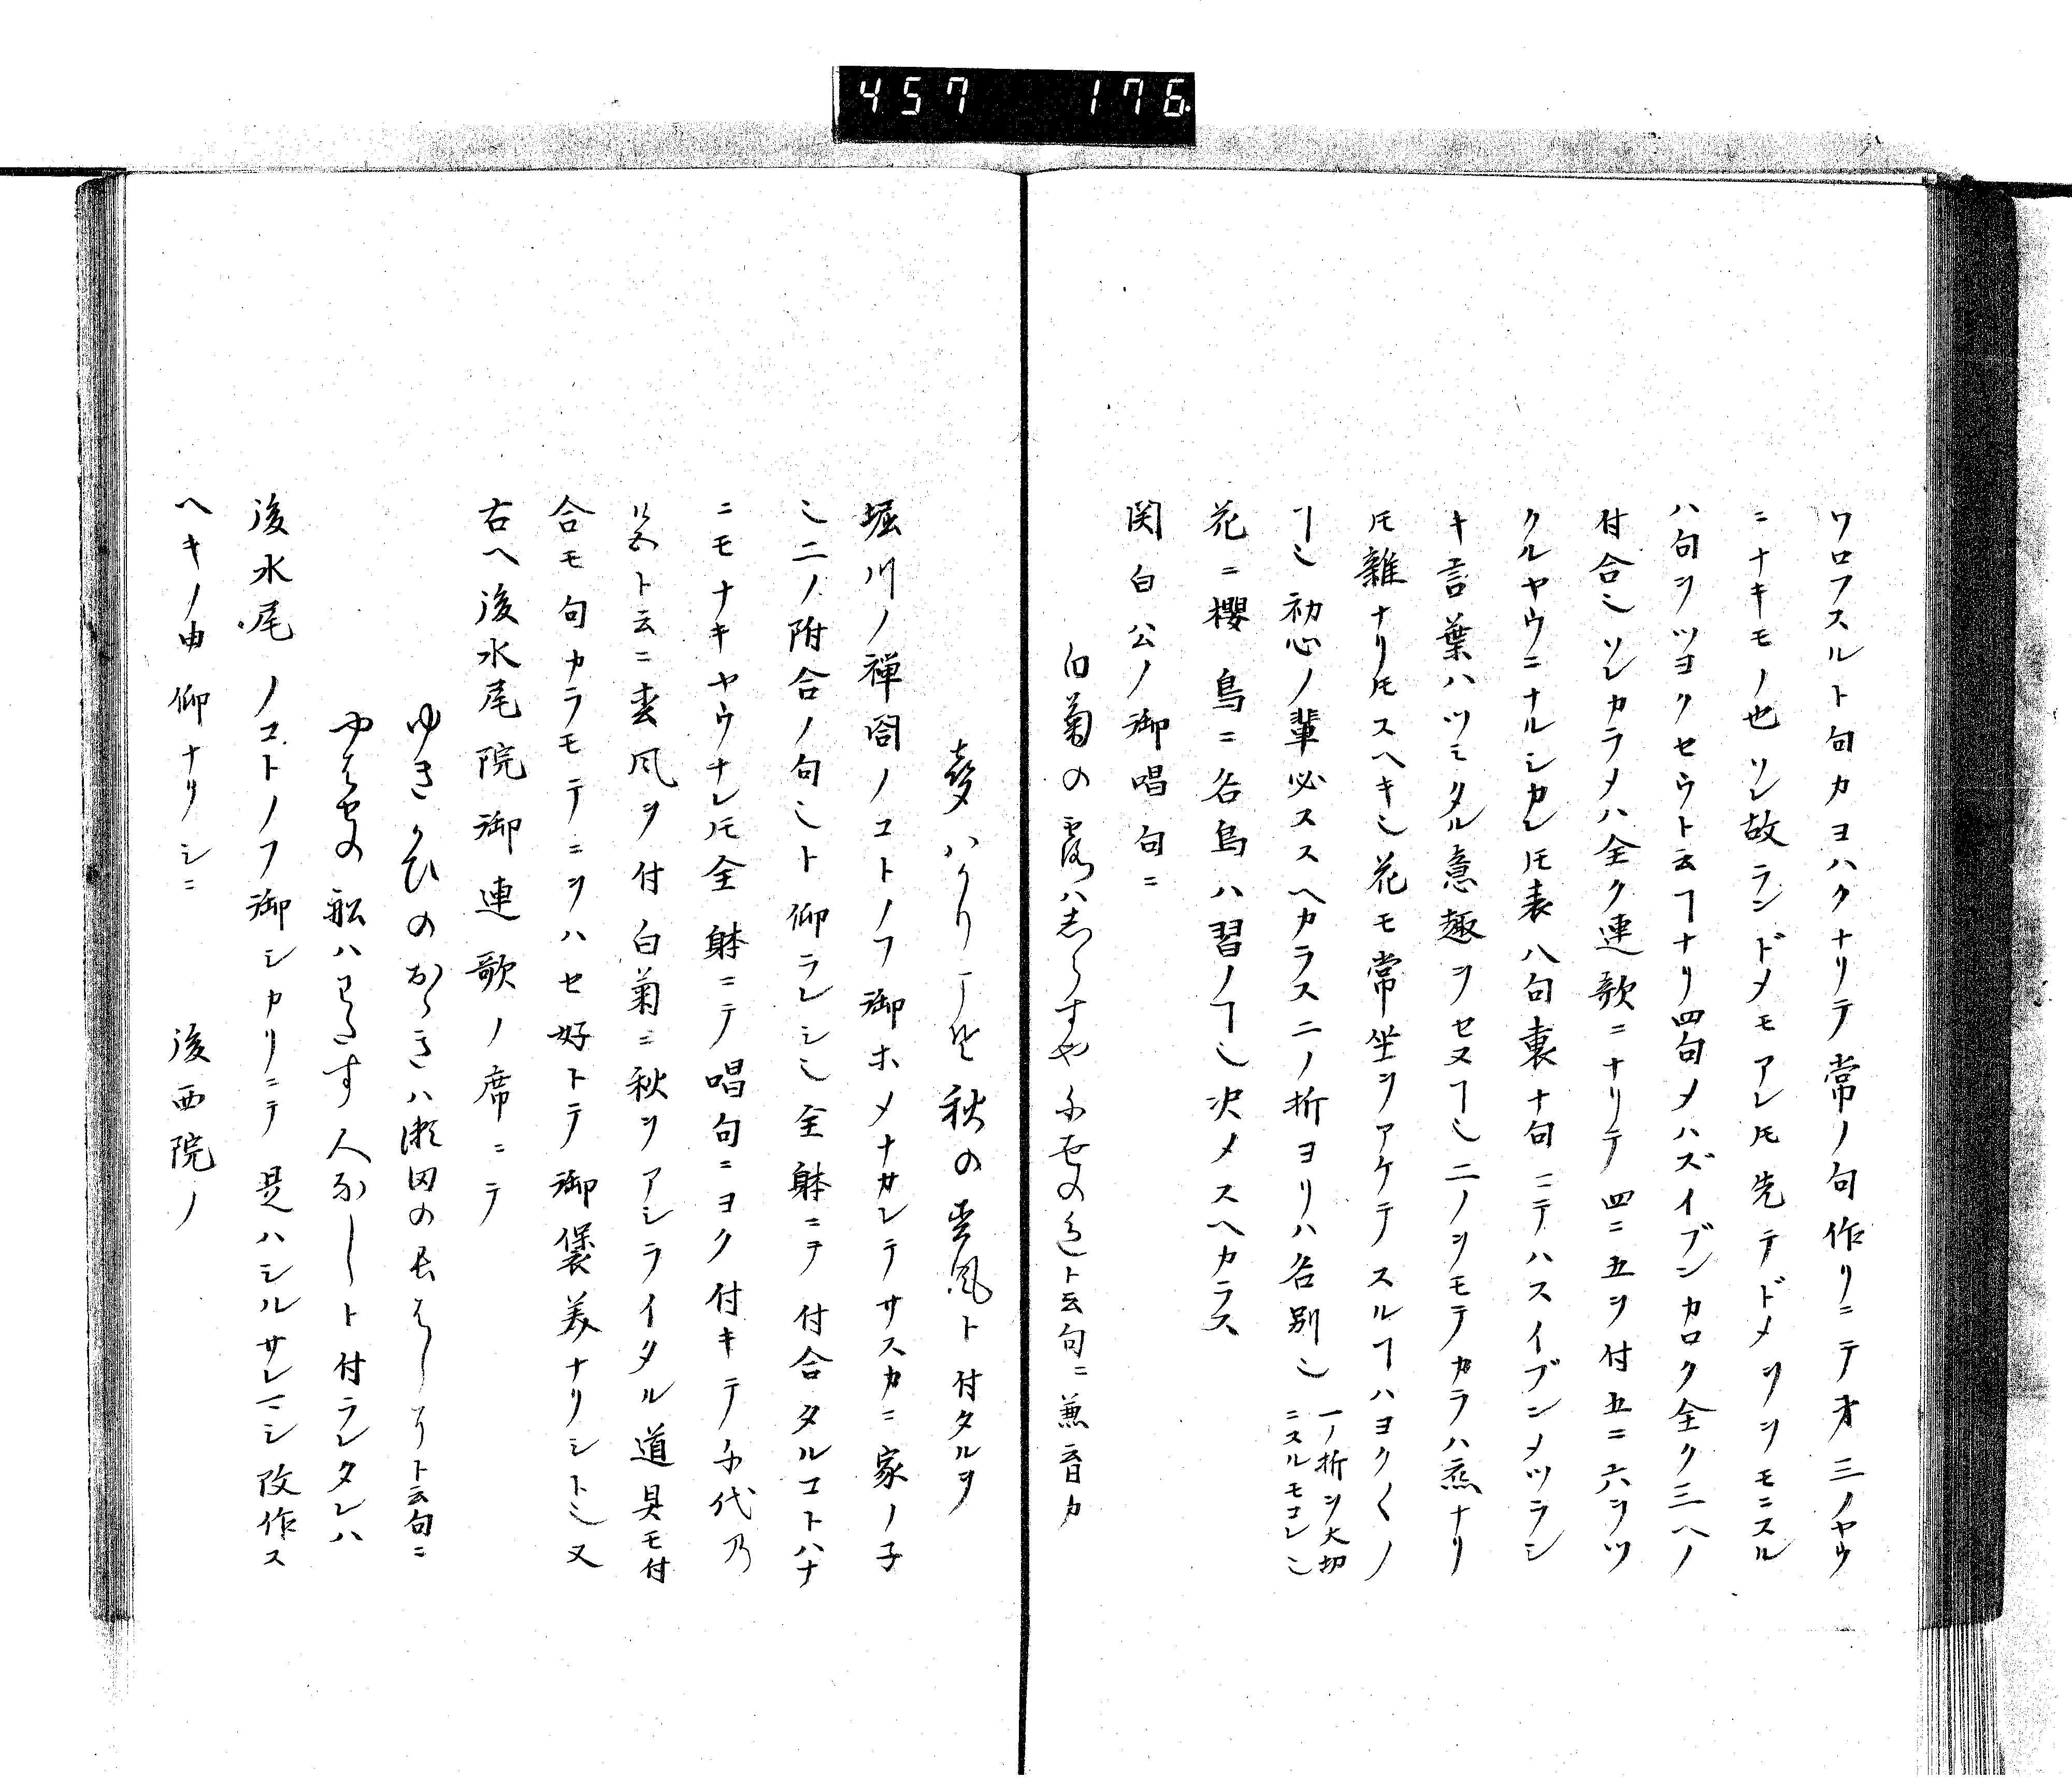 457 176
ワロフスルト句カヨハクナリテ常ノ句作リニテ才三ノヤウ
ニナキモノ也ソレ故ランドメモアレ𪜈先テドメヲモニスル
ハ句ヲツヨクセウト云ヿナリ四句メハズイブンカロク全ク三ヘノ
付合乄ソレカラメハ全ク連歌ニナリテ四ニ五ヲ付五ニ六ヲツ
クルヤウニナルシカレ𪜈表八句裏十句ニテハスイブンメツラシ
キ言葉ハツミタル意趣ヲセヌヿ也二ノヲモテカラハ烝ナリ
𪜈雜ナリ𪜈スヘキ也花モ常坐ヲアケテスルヿハヨク〱ノ
ヿ也初心ノ輩必ススヘカラス二ノ折ヨリハ各別也
一ノ折ヲ大切
ニスルモコレ也
花ニ櫻鳥ニ名鳥ハ習ノヿ也决メスヘカラス
関白公ノ御唱句ニ
白菊の露ハ志らすや千世の色ト云句ニ兼音カ
秋の雲風ト付タルヲ
堀川ノ禅閤ノコトノフ御ホメナサレテサスカニ家ノ子
也二ノ附合ノ句也ト仰ラレシ也全躰ニテ付合タルコトハナ
ニモナキヤウナレ𪜈全躰ニテ唱句ニヨク付キテ千代乃
ト云ニ雲風ヲ付白菊ニ秋ヲアシライタル道具モ付
合モ句カラモテニヲハセ好トテ御褒美ナリシト也又
右ヘ後水尾院御連歌ノ席ニテ
ゆきかひのおゝきハ瀬田の長はしにト云句ニ
やはせの舩ハわたす人なしト付ラレタレハ
後水尾ノコトノフ御シカリニテ是ハシルサレマシ改作ス
ヘキノ由仰ナリシニ 後西院ノ